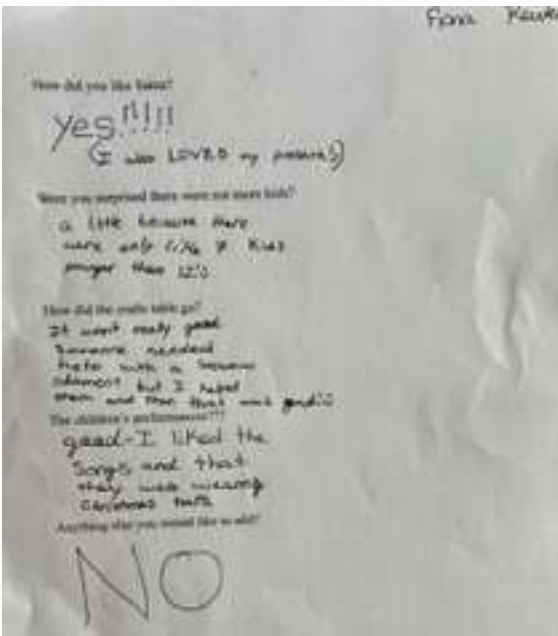 Fiona
How did you like Santa?
yes!!!!!
(I also LOVED my present!)
Were you surprised there were not more kids?
a little because there
were only like 7 kids
younger than 12!!
How did the crafts table go?
It went really good
Someone needed
help with a
but I helped
them and then that was good!!
The children's performance???
good-I liked the
songs and that
they were wearing
Christmas hats
Anything else you would like to add?
NO